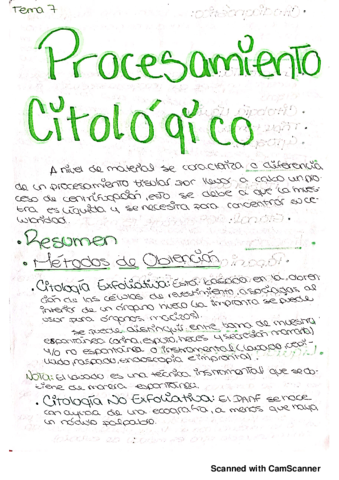 Tema 7
Procesamiento
Citológico
A nivel de material se caracteriza a diferencia
de un procesamiento tisular por llevar a cabo un pro
ceso de centrifugación, esto se debe a que la mues
tra es líquida y se necesita para concentrar su ce
lularidad.
• Resumen
• Métodos de Obtención
• Citología Exfoliativa: Está basada en la obten
ción de las células de revestimiento, asociadas al
interior de un órgano hueco (la impronta se puede
usar para órganos macizos).
Se puede distinguir entre toma de muestra
espontánea (orina, esputo, heces y secreción mamaria)
y/o no espontánea o instrumental (lavado, cepi
llado, raspado, endoscopia e impronta)
Nota: El lavado es una técnica instrumental que se ob
tiene de manera espontánea.
• Citología No Exfoliativa: El PAAF se hace
con ayuda de una ecografía, a menos que haya
un nódulo palpable.
Scanned with CamScanner